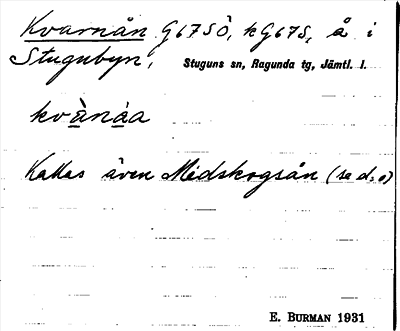 Kvarnån G67SÖ, k G67S, å i
Stugubyn, Stuguns sn, Ragunda tg, Jämtl. l.
kvànáa
Kallas även Midskogsån (se d.o)
E. BURMAN 1931